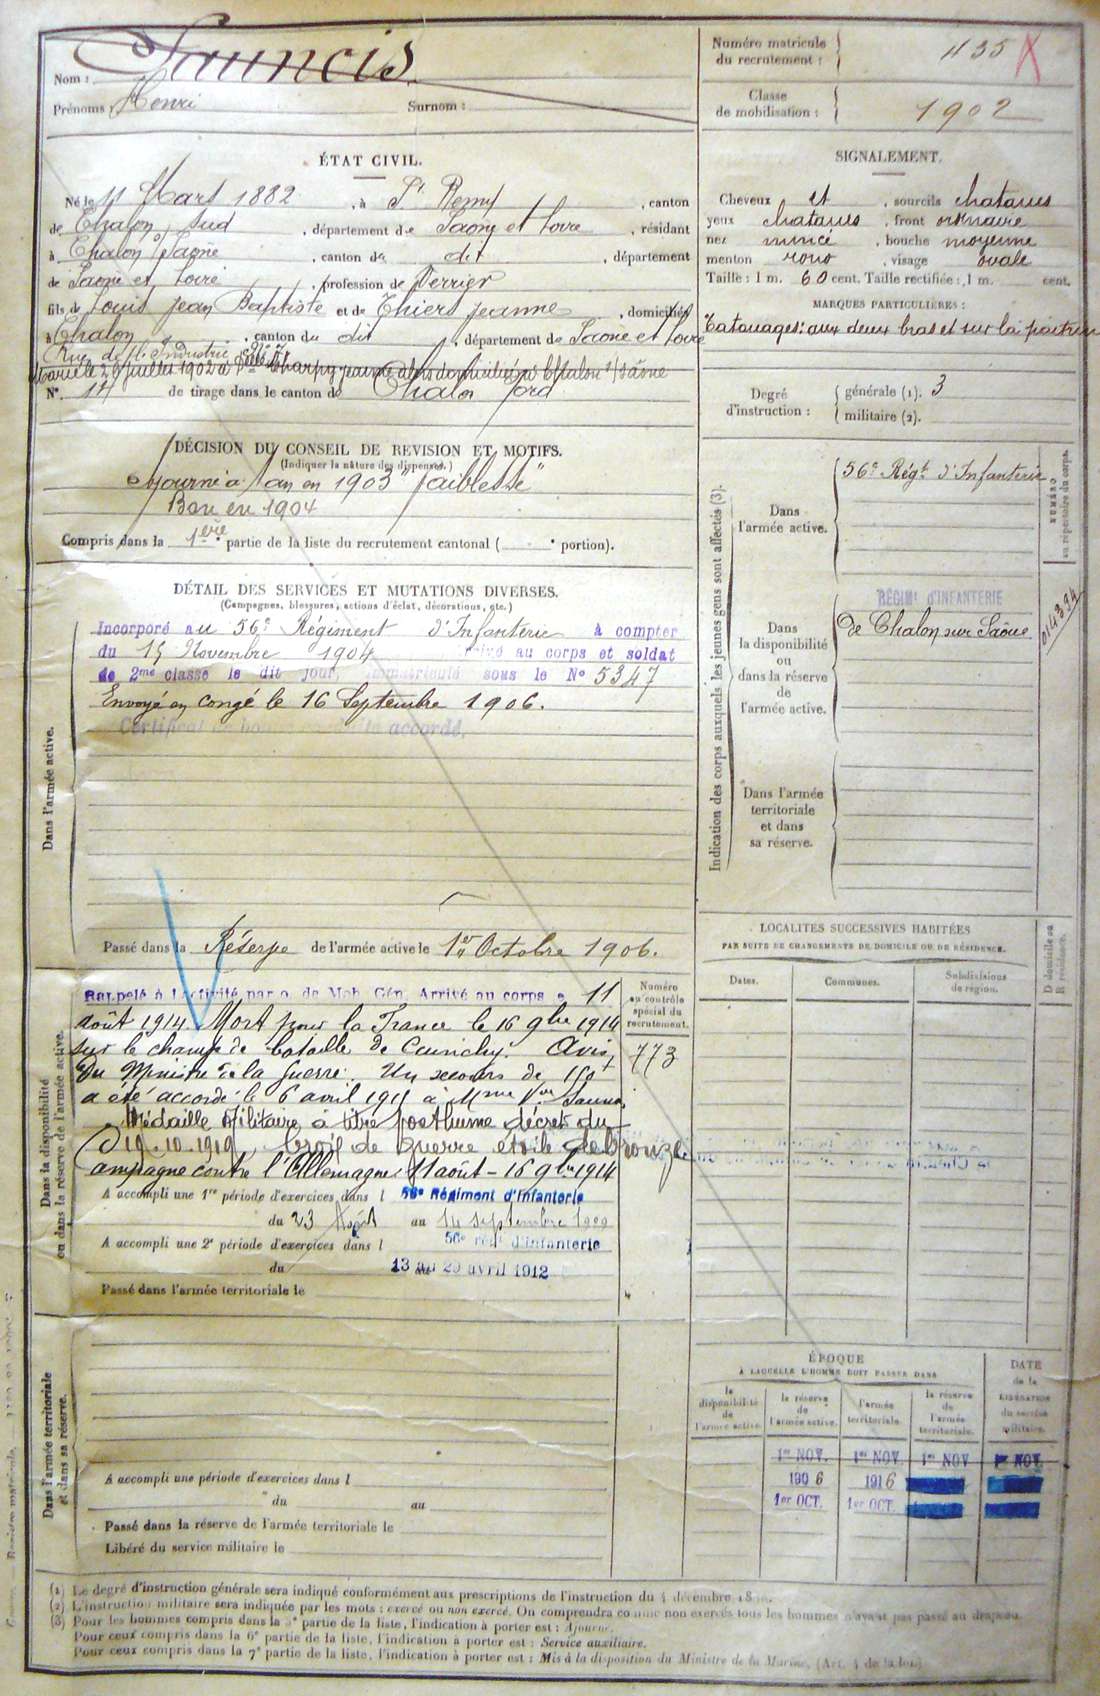 Nom : Saunois
Prénoms : Henri Surnom :
Numéro matricule du recrutement : 1135
Classe de mobilisation : 1902
ÉTAT CIVIL.
Né le 11 Mars 1882, à St Remy, canton
de Chalon Sud, département de Saone et Loire, résidant
à Chalon s/ Saone, canton de dit, département
de Saone et Loire, profession de Verrier
fils de Louis Jean Baptiste et de Thiers Jeanne, domiciliés
à Chalon, canton du dit, département de Saone et Loire
Rue de l'Industrie
Marié le 29 juillet 1902 à
N°. de tirage dans le canton de Chalon Nord
SIGNALEMENT.
Cheveux et, sourcils chatains
yeux chatains, front ordinaire
nez mince, bouche moyenne
menton rond, visage ovale
Taille : 1 m. 60 cent. Taille rectifiée : 1 m. cent.
MARQUES PARTICULIÈRES :
Tatouages: aux deux bras et sur la poitrine
Degré d'instruction : générale (1). 3
militaire (2).
DÉCISION DU CONSEIL DE REVISION ET MOTIFS.
(Indiquer la nature des dispenses.)
Ajourné à 1 an en 1903 "faiblesse"
Bon en 1904
Compris dans la 1ère partie de la liste du recrutement cantonal ( portion).
DÉTAIL DES SERVICES ET MUTATIONS DIVERSES.
(Campagnes, blessures, actions d'éclat, décorations, etc.)
Dans l'armée active.
Incorporé au 56e Régiment d'Infanterie à compter
du 15 Novembre 1904 arrivé au corps et soldat
de 2me classe le dit jour, immatriculé sous le N° 5347
Envoyé en congé le 16 Septembre 1906.
Certificat de accordé.
Passé dans la Réserve de l'armée active le 1er Octobre 1906.
Indication des corps auxquels les jeunes gens sont affectés (3).
Dans l'armée active.
56e Régt d'Infanterie
NUMÉRO au répertoire du corps.
Dans la disponibilité ou dans la réserve de l'armée active.
RÉGIMt d'INFANTERIE
de Chalon sur Saône
014394
Dans l'armée territoriale et dans sa réserve.
Dans la disponibilité ou dans la réserve de l'armée active.
Rappelé à l'activité par o. de Mob. Gén. Arrivé au corps le 11
août 1914. Mort pour la France le 16 9bre 1914
sur le champ de bataille de Avis
du Ministre de la Guerre. Un secours de 150f
a été accordé le 6 avril 1915 à Mme Vve
Médaille Militaire à titre posthume décret du
19.10.1919 Croix de Guerre étoile de bronze
Campagne contre l'Allemagne 11 août - 16 9bre 1914
A accompli une 1re période d'exercices dans l 56e Régiment d'Infanterie
du 23 Août au 14 septembre 1909
A accompli une 2e période d'exercices dans l 56e régt d'infanterie
du 13 au 29 avril 1912
Passé dans l'armée territoriale le
Numéro au contrôle spécial du recrutement.
773
LOCALITÉS SUCCESSIVES HABITÉES
PAR SUITE DE CHANGEMENTS DE DOMICILE OU DE RÉSIDENCE.
Dates. Communes. Subdivisions de région.
D domicile ou R résidence.
Dans l'armée territoriale et dans sa réserve.
A accompli une période d'exercices dans l
du au
Passé dans la réserve de l'armée territoriale le
Libéré du service militaire le
ÉPOQUE
À LAQUELLE L'HOMME DOIT PASSER DANS
la disponibilité de l'armée active.
la réserve de l'armée active.
l'armée territoriale.
la réserve de l'armée territoriale.
DATE de la LIBÉRATION du service militaire.
1er NOV. 1er NOV. 1er NOV 1er NOV.
1906 1916
1er OCT. 1er OCT.
(1) Le degré d'instruction générale sera indiqué conformément aux prescriptions de l'instruction du 4 décembre
(2) L'instruction militaire sera indiquée par les mots : exercé ou non exercé. On comprendra comme non exercés tous les hommes n'ayant pas passé au drapeau.
(3) Pour les hommes compris dans la partie de la liste, l'indication à porter est : Ajourné.
Pour ceux compris dans la 6e partie de la liste, l'indication à porter est : Service auxiliaire.
Pour ceux compris dans la 7e partie de la liste, l'indication à porter est : Mis à la disposition du Ministre de la Marine. (Art. 4 de la loi.)